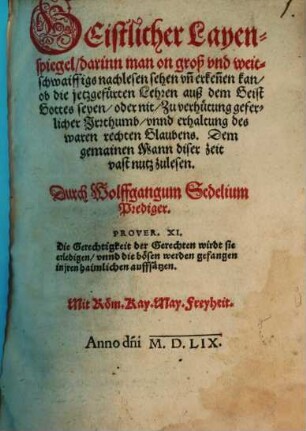 GEistlicher Layen-
spiegel/darinn man on groß vnd weit-
schwaiffigs nachlesen sehen vñ erkeñen kan/
ob die jetzgefürten Lehren auß dem Geist
Gottes seyen/oder nit/Zu verhütung gefer-
licher Jrrthumb/vnnd erhaltung des
waren rechten Glaubens. Dem
gemainen Mann diser zeit
vast nutz zulesen.
Durch Wolffgangum Sedelium
Prediger.
PROVER. XI.
Die Gerechtigkeit der Gerechten wirdt sie
erledigen/vnnd die bösen werden gefangen
in jren haimlichen auffsätzen.
Mit Röm. Kay. May. Freyheit.
Anno dñi M. D. LIX.